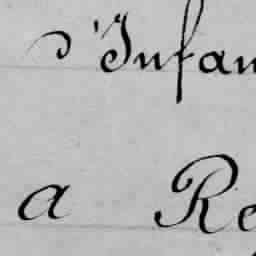 d'Infan
a Re